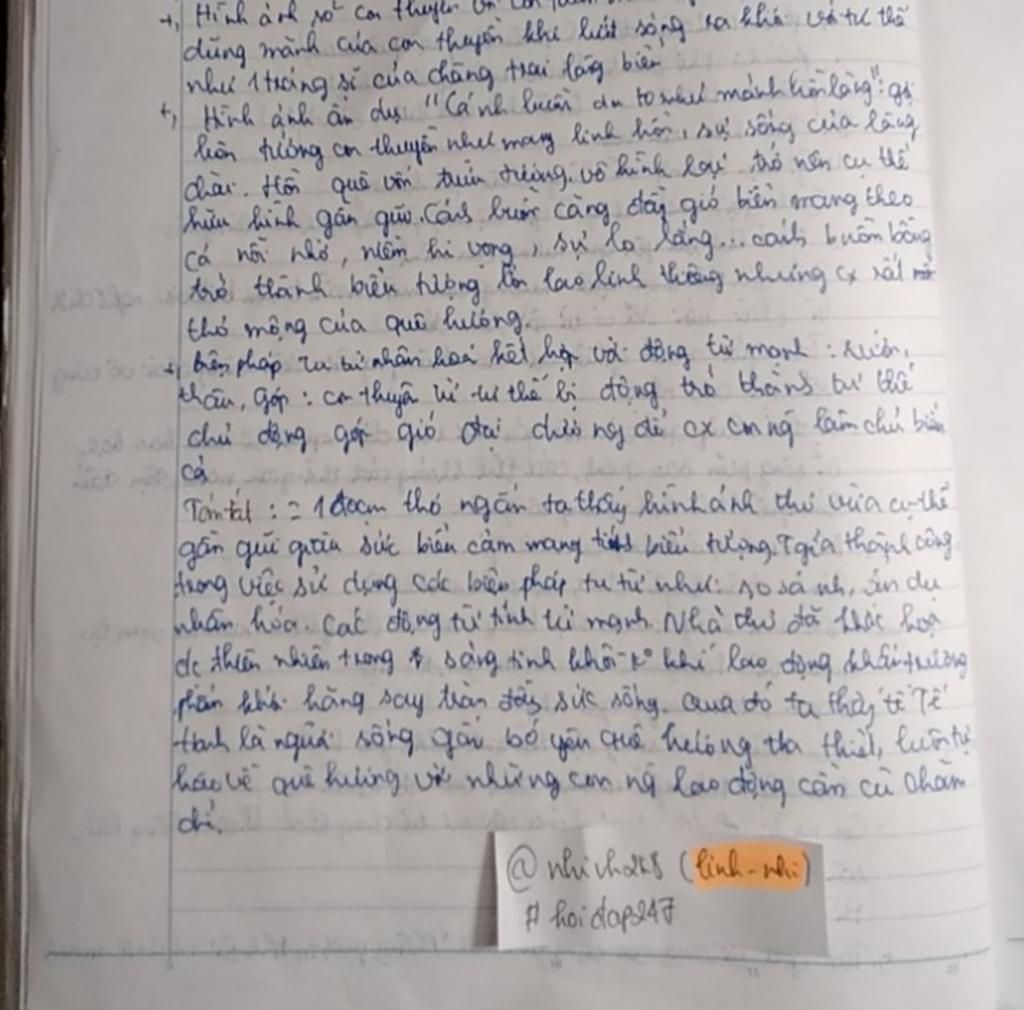 +, Hình ảnh so² con thuyền
dũng mãnh của con thuyền khi lướt sóng ra khơi và tư thế
như 1 tráng sĩ của chàng trai làng biển
+, Hình ảnh ẩn dụ "Cánh buồm to như mảnh hồn làng": gợi
liên tưởng con thuyền như mang linh hồn, sự sống của làng
chài. Hồn quê vốn trừu tượng, vô hình lại trở nên cụ thể
hữu hình gần gũi. Cánh buồm căng đầy gió biển mang theo
cả nỗi nhớ, niềm hi vọng, sự lo lắng... cánh buồm bỗng
trở thành biểu tượng lớn lao linh thiêng nhưng cx rất
thơ mộng của quê hương.
+, biện pháp tu từ nhân hoá kết hợp với động từ mạnh: rướn,
thâu, góp: con thuyền từ tư thế bị động trở thành tư thế
chủ động góp gió đại dương để cx con ng làm chủ biển
cả
Tóm tắt: = 1 đoạn thơ ngắn ta thấy hình ảnh thơ vừa cụ thể
gần gũi giàu sức biểu cảm mang tính biểu tượng. T giả thành công
trong việc sử dụng các biện pháp tu từ như: so sánh, ẩn dụ
nhân hóa. Các động từ tính từ mạnh. Nhà thơ đã khắc hoạ
dc thiên nhiên trong sáng tinh khôi - k° khí lao động khẩn trương
phấn khởi hăng say tràn đầy sức sống. Qua đó ta thấy tế Tế
Hanh là người sống gắn bó yêu quê hương tha thiết, luôn tự
hào về quê hương với những con ng lao động cần cù chăm
chỉ.
@nhivh2k8 (linh-nhi)
#hoidap247